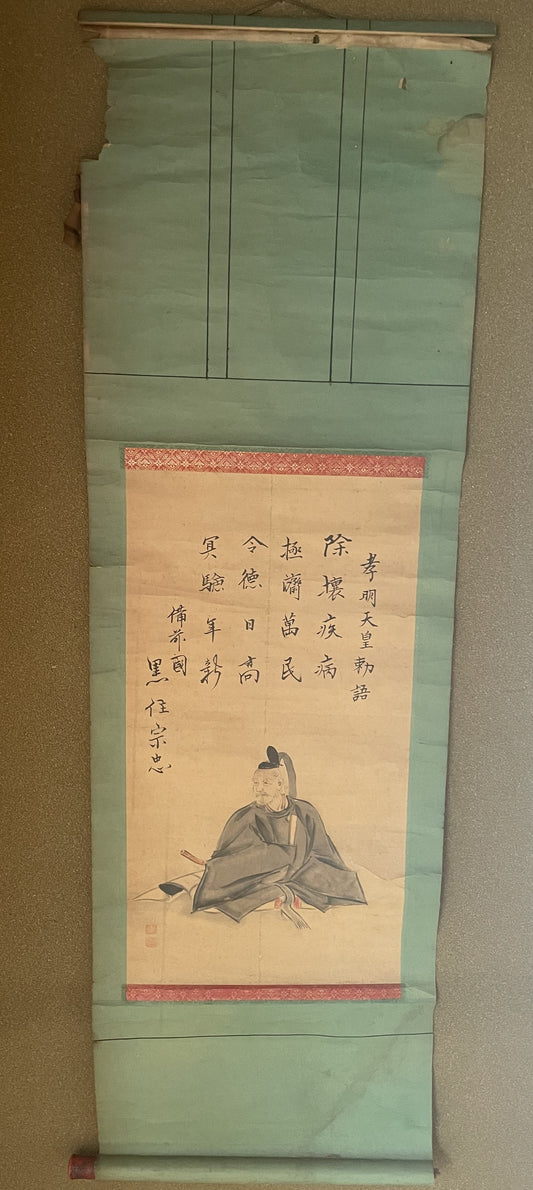 孝明天皇勅語
除壞疾病
極濟萬民
令德日高
冥驗年新
備前國
黒住宗忠